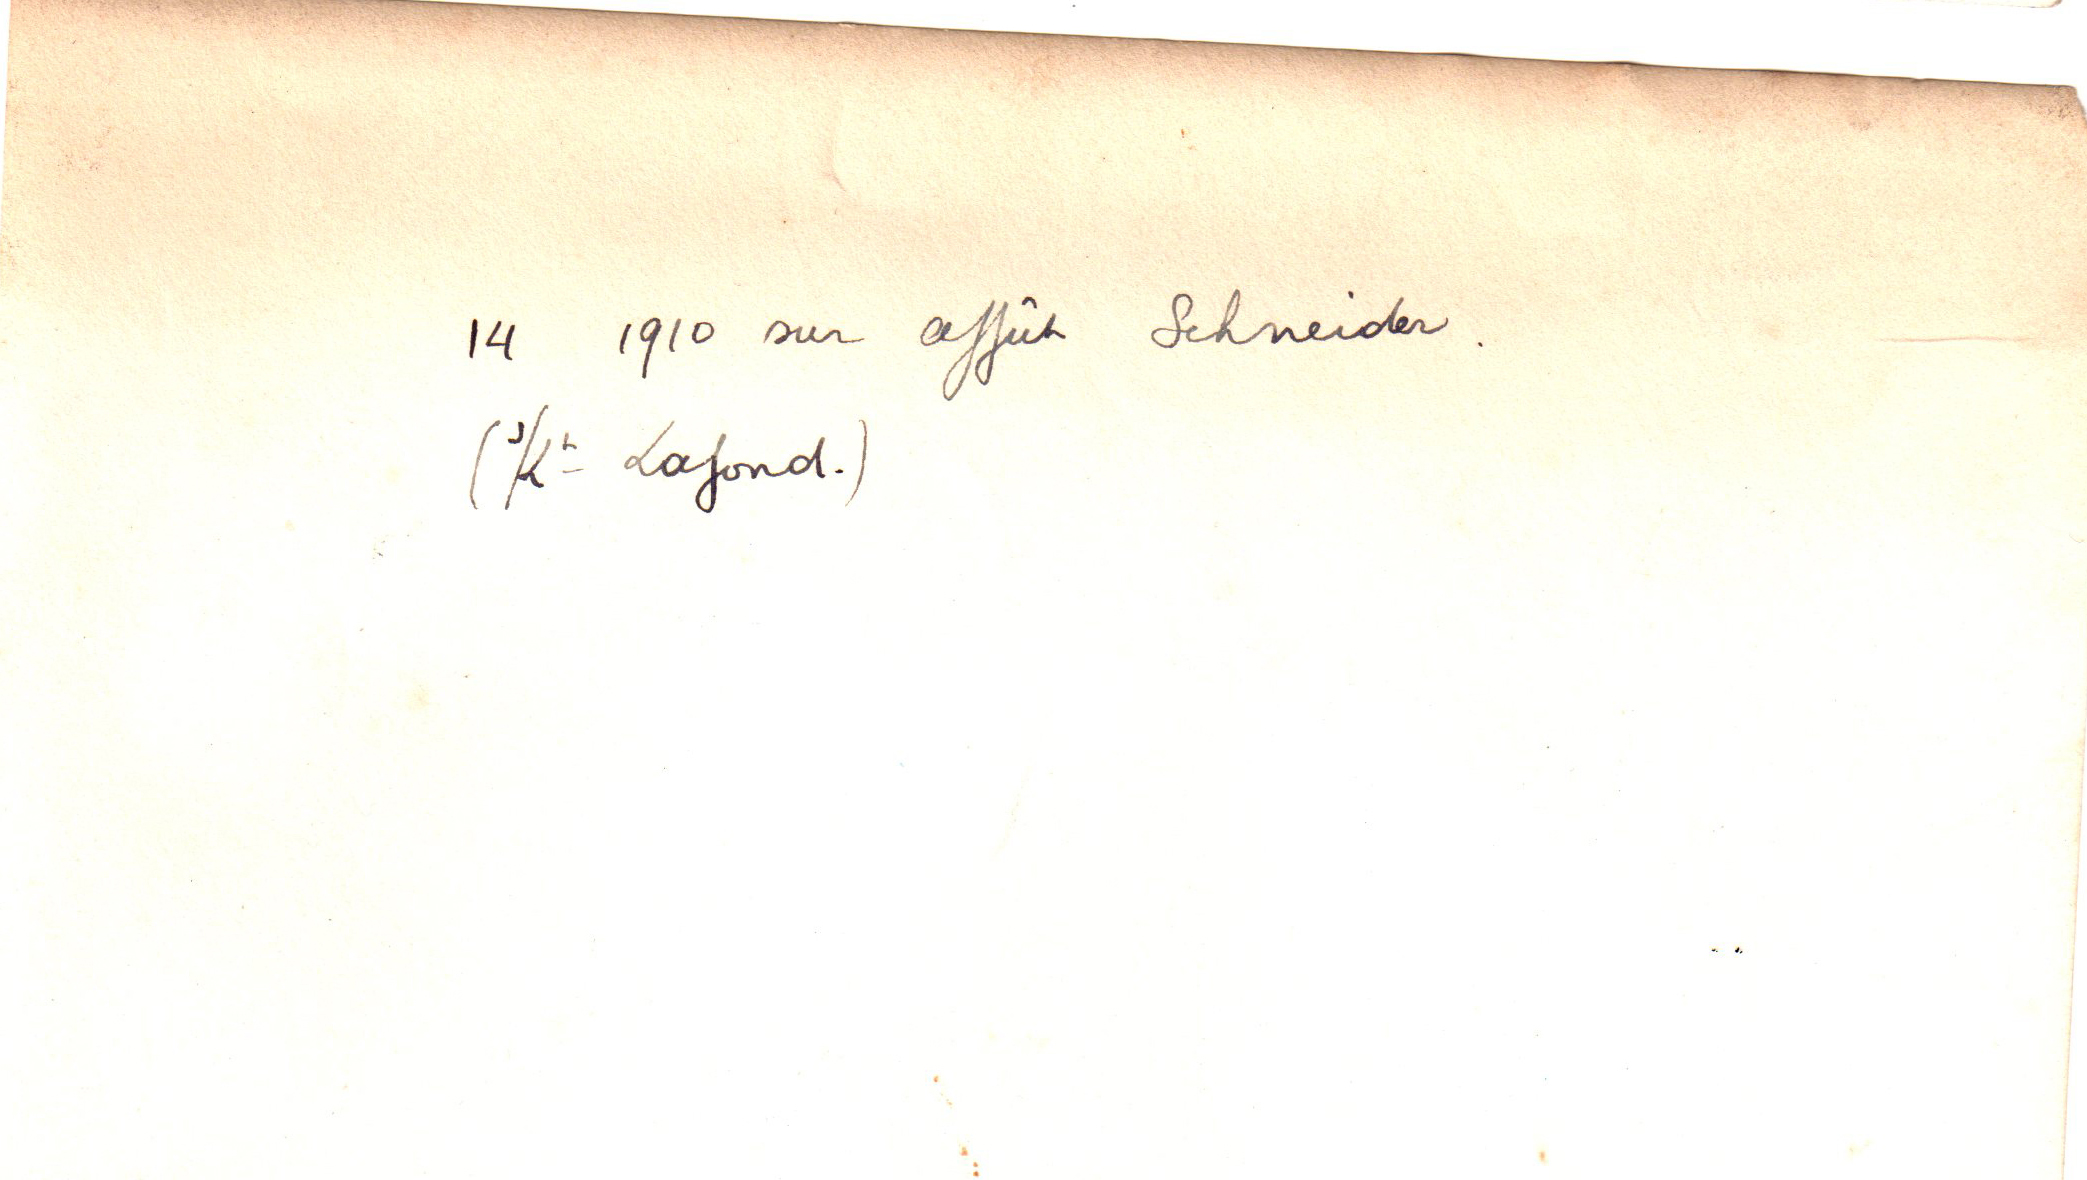 14 1910 sur affût Schneider.
(Lafond.)